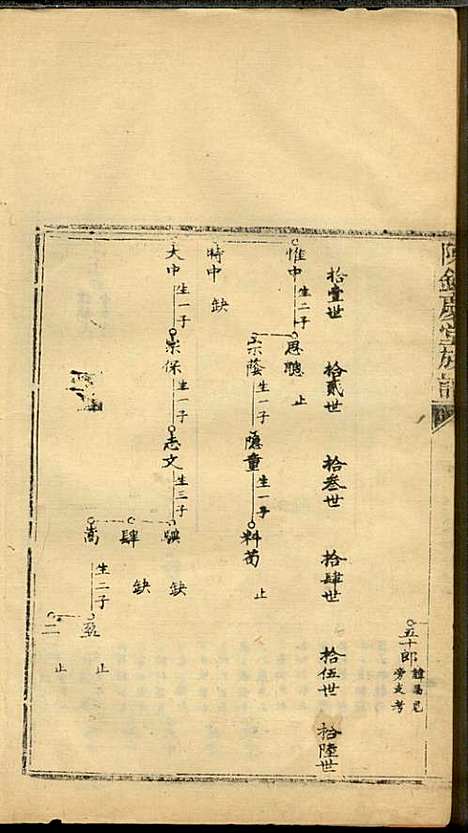 陳餘慶堂族譜
五十郎
旁支考
拾壹世
拾貳世
拾叁世
拾肆世
拾伍世
拾陸世
惟中
生二子
思聰
止
宗蔭
生一子
隱童
生一子
料苟
止
時中
缺
大中
生一子
宗保
生一子
志文
生三子
缺
肆
缺
嵩
生二子
止
二
止